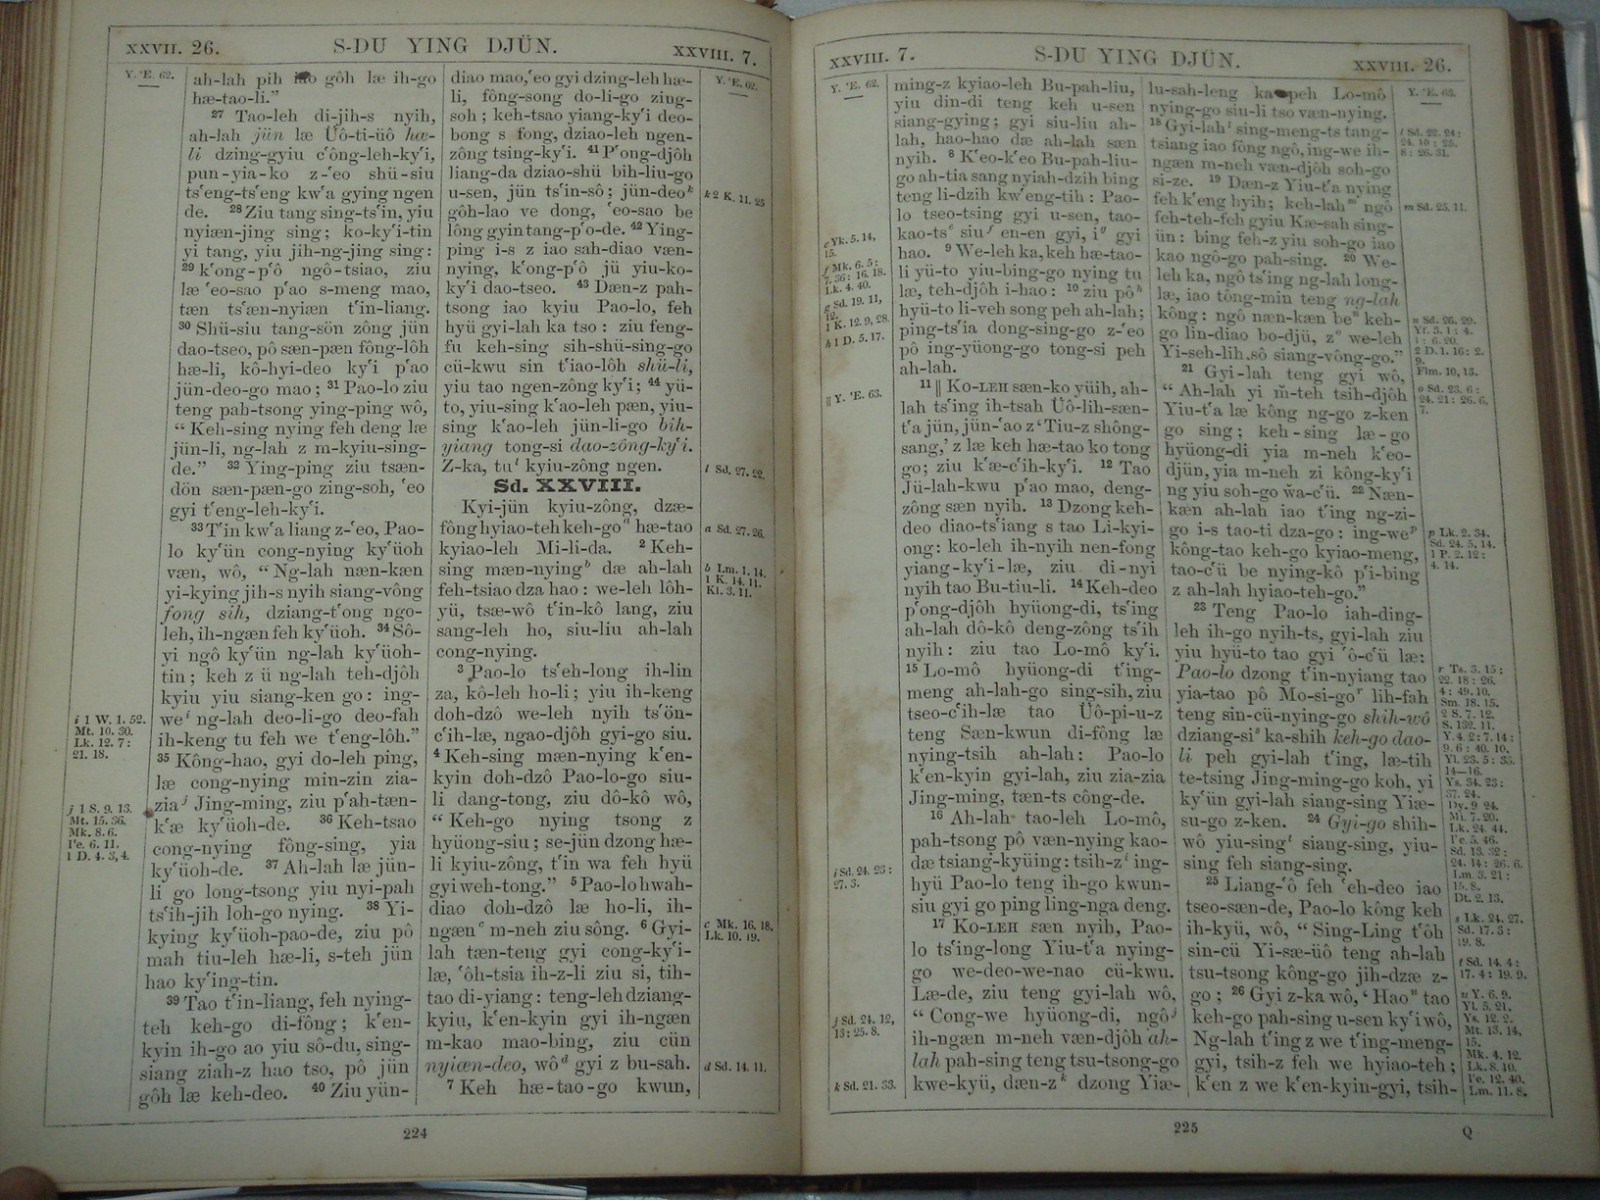 XXVII. 26.
S-DU YING DJÜN.
XXVIII. 7.
Y. ʻE. 62.
ah-lah pih gôh læ ih-go
hæ-tao-li.”
27 Tao-leh di-jih-s nyih,
ah-lah jün læ Üô-ti-üô hæ-
li dzing-gyiu cʻông-leh-kyʻi,
pun-yia-ko z-ʻeo shü-siu
tsʻeng-tsʻeng kwʻa gying ngen
de. 28 Ziu tang sing-tsʻin, yiu
nyiæn-jing sing; ko-kyʻi-tin
yi tang, yiu jih-ng-jing sing:
29 kʻong-pʻô ngô-tsiao, ziu
læ ʻeo-sao pʻao s-meng mao,
tæn tsʻæn-nyiæn tʻin-liang.
30 Shü-siu tang-sön zông jün
dao-tseo, pô sæn-pæn fông-lôh
hæ-li, kô-hyi-deo kyʻi pʻao
jün-deo-go mao; 31 Pao-lo ziu
teng pah-tsong ying-ping wô,
“Keh-sing nying feh deng læ
jün-li, ng-lah z m-kyiu-sing-
de.” 32 Ying-ping ziu tsæn-
dön sæn-pæn-go zing-soh, ʻeo
gyi tʻeng-leh-kyʻi.
33 Tʻin kwʻa liang z-ʻeo, Pao-
lo kyʻün cong-nying kyʻüoh
væn, wô, “Ng-lah næn-kæn
yi-kying jih-s nyih siang-vông
fong sih, dziang-tʻong ngo-
leh, ih-ngæn feh kyʻüoh. 34 Sô-
yi ngô kyʻün ng-lah kyʻüoh-
tin; keh z ü ng-lah teh-djôh
kyiu yiu siang-ken go: ing-
we i ng-lah deo-li-go deo-fah
ih-keng tu feh we tʻeng-lôh.”
35 Kông-hao, gyi do-leh ping,
læ cong-nying min-zin zia-
zia j Jing-ming, ziu pʻah-tæn-
kʻæ kyʻüoh-de. 36 Keh-tsao
cong-nying fông-sing, yia
kyʻüoh-de. 37 Ah-lah læ jün-
li go long-tsong yiu nyi-pah
tsʻih-jih loh-go nying. 38 Yi-
kying kyʻüoh-pao-de, ziu pô
mah tiu-leh hæ-li, s-teh jün
hao kyʻing-tin.
39 Tao tʻin-liang, feh nying-
teh keh-go di-fông; kʻen-
kyin ih-go ao yiu sô-du, sing-
siang ziah-z hao tso, pô jün
gôh læ keh-deo. 40 Ziu yün-
i 1 W. 1. 52.
Mt. 10. 30.
Lk. 12. 7:
21. 18.
j 1 S. 9. 13.
Mt. 15. 36.
Mk. 8. 6.
ʻe. 6. 11.
1 D. 4. 3, 4.
diao mao, ʻeo gyi dzing-leh hæ-
li, fông-song do-li-go zing-
soh; keh-tsao yiang-kyʻi deo-
bong s fong, dziao-leh ngen-
zông tsing-kyʻi. 41 Pʻong-djôh
liang-da dziao-shü bih-liu-go
u-sen, jün tsʻin-sô; jün-deo k
gôh-lao ve dong, ʻeo-sao be
lông gyin tang-pʻo-de. 42 Ying-
ping i-s z iao sah-diao væn-
nying, kʻong-pʻô jü yiu-ko-
kyʻi dao-tseo. 43 Dæn-z pah-
tsong iao kyiu Pao-lo, feh
hyü gyi-lah ka tso: ziu feng-
fu keh-sing sih-shü-sing-go
cü-kwu sin tʻiao-lôh shü-li,
yiu tao ngen-zông kyʻi; 44 yü-
to, yiu-sing kʻao-leh pæn, yiu-
sing kʻao-leh jün-li-go bih-
yiang tong-si dao-zông-kyʻi.
Z-ka, tu l kyiu-zông ngen.
Sd. XXVIII.
Kyi-jün kyiu-zông, dzæ-
fông hyiao-teh keh-go a hæ-tao
kyiao-leh Mi-li-da. 2 Keh-
sing mæn-nying b dæ ah-lah
feh-tsiao dza hao: we-leh lôh-
yü, tsæ-wô tʻin-kô lang, ziu
sang-leh ho, siu-liu ah-lah
cong-nying.
3 Pao-lo tsʻeh-long ih-lin
za, kô-leh ho-li; yiu ih-keng
doh-dzô we-leh nyih tsʻön-
cʻih-læ, ngao-djôh gyi-go siu.
4 Keh-sing mæn-nying kʻen-
kyin doh-dzô Pao-lo-go siu-
li dang-tong, ziu dô-kô wô,
“Keh-go nying tsong z
hyüong-siu; se-jün dzong hæ-
li kyiu-zông, tʻin wa feh hyü
gyi weh-tong.” 5 Pao-lo hwah-
diao doh-dzô læ ho-li, ih-
ngæn c m-neh ziu sông. 6 Gyi-
lah tæn-teng gyi cong-kyʻi-
læ, ʻôh-tsia ih-z-li ziu si, tih-
tao di-yiang: teng-leh dziang-
kyiu, kʻen-kyin gyi ih-ngæn
m-kao mao-bing, ziu cün
nyiæn-deo, wô d gyi z bu-sah.
7 Keh hæ-tao-go kwun,
Y. ʻE. 62.
k 2 K. 11. 25
l Sd. 27. 22.
a Sd. 27. 26.
b Lm. 1. 14.
1 K. 14. 11.
Kl. 3. 11.
c Mk. 16. 18.
Lk. 10. 19.
d Sd. 14. 11.
224
XXVIII. 7.
S-DU YING DJÜN.
XXVIII. 26.
Y. ʻE. 62.
ming-z kyiao-leh Bu-pah-liu,
yiu din-di teng keh u-sen
siang-gying; gyi siu-liu ah-
lah, hao-hao dæ ah-lah sæn
nyih. 8 Kʻeo-kʻeo Bu-pah-liu-
go ah-tia sang nyiah-dzih bing
teng li-dzih kwʻeng-tih: Pao-
lo tseo-tsing gyi u-sen, tao-
kao-ts e siu f en-en gyi, i g gyi
hao. 9 We-leh ka, keh hæ-tao-
li yü-to yiu-bing-go nying tu
læ, teh-djôh i-hao: 10 ziu pô h
hyü-to li-veh song peh ah-lah;
ping-tsʻia dong-sing-go z-ʻeo
pô ing-yüong-go tong-si peh
ah-lah.
11 ‖ KO-LEH sæn-ko yüih, ah-
lah tsʻing ih-tsah Üô-lih-sæn-
tʻa jün, jün-ʻao z ‘Tiu-z shông-
sang,’ z læ keh hæ-tao ko tong
go; ziu kʻæ-cʻih-kyʻi. 12 Tao
Jü-lah-kwu pʻao mao, deng-
zông sæn nyih. 13 Dzong keh-
deo diao-tsʻiang s tao Li-kyi-
ong: ko-leh ih-nyih nen-fong
yiang-kyʻi-læ, ziu di-nyi
nyih tao Bu-tiu-li. 14 Keh-deo
pʻong-djôh hyüong-di, tsʻing
ah-lah dô-kô deng-zông tsʻih
nyih: ziu tao Lo-mô kyʻi.
15 Lo-mô hyüong-di tʻing-
meng ah-lah-go sing-sih, ziu
tseo-cʻih-læ tao Üô-pi-u-z
teng Sæn-kwun di-fông læ
nying-tsih ah-lah: Pao-lo
kʻen-kyin gyi-lah, ziu zia-zia
Jing-ming, tæn-ts công-de.
16 Ah-lah tao-leh Lo-mô,
pah-tsong pô væn-nying kao-
dæ tsiang-kyüing: tsih-z i ing-
hyü Pao-lo teng ih-go kwun-
siu gyi go ping ling-nga deng.
17 KO-LEH sæn nyih, Pao-
lo tsʻing-long Yiu-tʻa nying-
go we-deo-we-nao cü-kwu.
Læ-de, ziu teng gyi-lah wô,
“Cong-we hyüong-di, ngô j
ih-ngæn m-neh væn-djôh ah-
lah pah-sing teng tsu-tsong-go
kwe-kyü, dæn-z k dzong Yiæ-
e Yk. 5. 14,
15.
f Mk. 6. 5:
7. 36: 16. 18.
Lk. 4. 40.
g Sd. 19. 11,
12.
1 K. 12. 9, 28.
h 1 D. 5. 17.
‖ Y. ʻE. 63.
i Sd. 24. 23:
27. 3.
j Sd. 24. 12,
13: 25. 8.
k Sd. 21. 33.
lu-sah-leng peh Lo-mô
nying-go siu-li tso væn-nying.
18 Gyi-lah l sing-meng-ts tang-
tsiang iao fông ngô, ing-we ih-
ngæn m-neh væn-djôh soh-go
si-ze. 19 Dæn-z Yiu-tʻa nying
feh kʻeng hyih; keh-lah m ngô
feh-teh-feh gyiu Kæ-sah sing-
ün: bing feh-z yiu soh-go iao
kao ngô-go pah-sing. 20 We-
leh ka, ngô tsʻing ng-lah long-
læ, iao tông-min teng ng-lah
kông: ngô næn-kæn be n keh-
go lin-diao bo-djü, z o we-leh
Yi-seh-lih sô siang-vông-go.”
21 Gyi-lah teng gyi wô,
“Ah-lah yi m-teh tsih-djôh
Yiu-tʻa læ kông ng-go z-ken
go sing; keh-sing læ-go
hyüong-di yia m-neh kʻeo-
djün, yia m-neh zi kông-kyʻi
ng yiu soh-go wa-cʻü. 22 Næn-
kæn ah-lah iao tʻing ng-zi-
go i-s tao-ti dza-go: ing-we p
kông-tao keh-go kyiao-meng,
tao-cʻü be nying-kô pʻi-bing
z ah-lah hyiao-teh-go.”
23 Teng Pao-lo iah-ding-
leh ih-go nyih-ts, gyi-lah ziu
yiu hyü-to tao gyi ʻô-cʻü læ:
Pao-lo dzong tʻin-nyiang tao
yia-tao pô Mo-si-go r lih-fah
teng sin-cü-nying-go shih-wô
dziang-si s ka-shih keh-go dao-
li peh gyi-lah tʻing, læ-tih
te-tsing Jing-ming-go koh, yi
kyʻün gyi-lah siang-sing Yiæ-
su-go z-ken. 24 Gyi-go shih-
wô yiu-sing t siang-sing, yiu-
sing feh siang-sing.
25 Liang-ʻô feh ʻeh-deo iao
tseo-sæn-de, Pao-lo kông keh
ih-kyü, wô, “Sing-Ling tʻôh
sin-cü Yi-sæ-üô teng ah-lah
tsu-tsong kông-go jih-dzæ z-
go; 26 Gyi z-ka wô, ‘Hao u tao
keh-go pah-sing u-sen kyʻi wô,
Ng-lah tʻing z we tʻing-meng-
gyi, tsih-z feh we hyiao-teh;
kʻen z we kʻen-kyin-gyi, tsih-
Y. ʻE. 63.
l Sd. 22. 24:
24. 10: 25.
8: 26. 31.
m Sd. 25. 11.
n Sd. 26. 29.
Yf. 3. 1: 4.
1: 6. 20.
2 D. 1. 16: 2.
9.
Flm. 10, 13.
o Sd. 23. 6:
24. 21: 26. 6,
7.
p Lk. 2. 34.
Sd. 24. 5, 14.
1 P. 2. 12:
4. 14.
r Ts. 3. 15:
22. 18: 26.
4: 49. 10.
Sm. 18. 15.
2 S. 7. 12.
S. 132. 11.
Y. 4. 2: 7. 14:
9. 6: 40. 10.
Yl. 23. 5: 33.
14—16.
Ys. 34. 23:
37. 24.
Dy. 9. 24.
Mi. 7. 20.
Lk. 24. 44.
ʻe. 5. 46.
Sd. 13. 32:
24. 14: 26. 6.
Lm. 3. 21:
15. 8.
Dt. 2. 13.
s Lk. 24. 27.
Sd. 17. 3:
19. 8.
t Sd. 14. 4:
17. 4: 19. 9.
u Y. 6. 9.
Yl. 5. 21.
Ys. 12. 2.
Mt. 13. 14,
15.
Mk. 4. 12.
Lk. 8. 10.
ʻe. 12. 40.
Lm. 11. 8.
225
Q